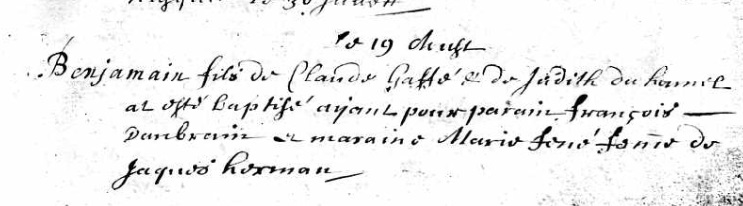 le 30
le 19 Aust
Benjamain fils de Claude Gaffé & de Judith du hamel
at esté baptisé ayant pour parain françois
Danbrain et maraine Marie fené femme de
Jaques herman